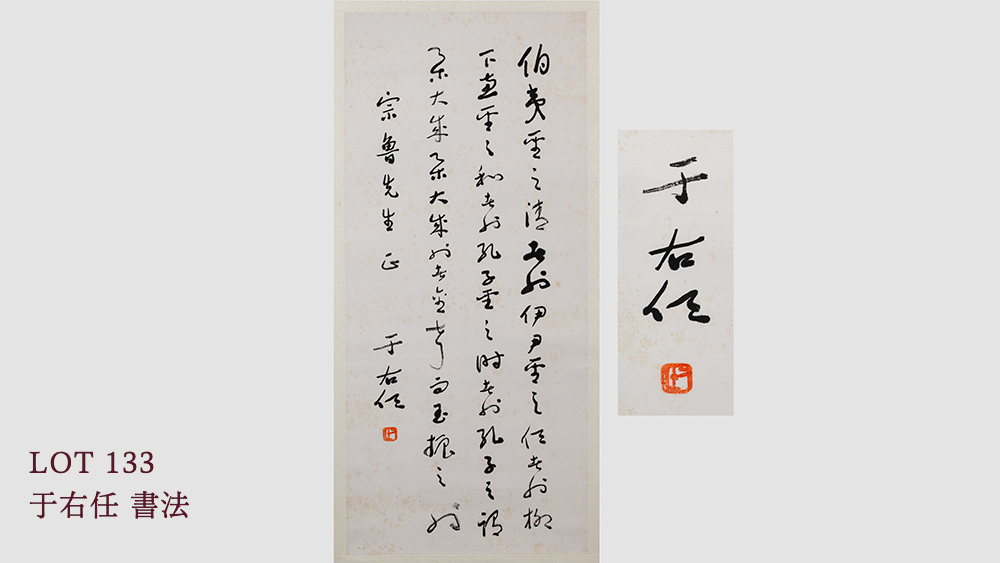 伯夷聖之清者也伊尹聖之任者也柳
下惠聖之和者也孔子聖之時者也孔子之謂
集大成集大成也者金聲而玉振之也
宗魯先生 正
于右任
于右任
LOT 133
于右任 書法